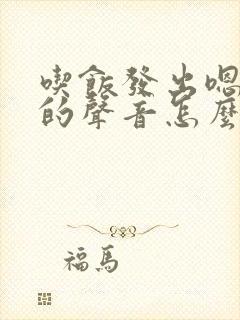 喫飯發出嗯
的聲音怎麼
福馬